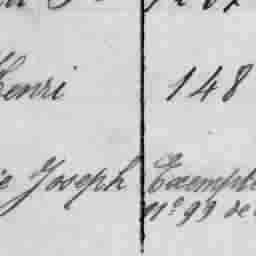 Henri 148
e Joseph Exempte
n° 99 de